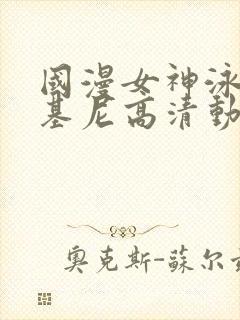 國漫女神泳
基尼高清動
奧克斯-蘇尔